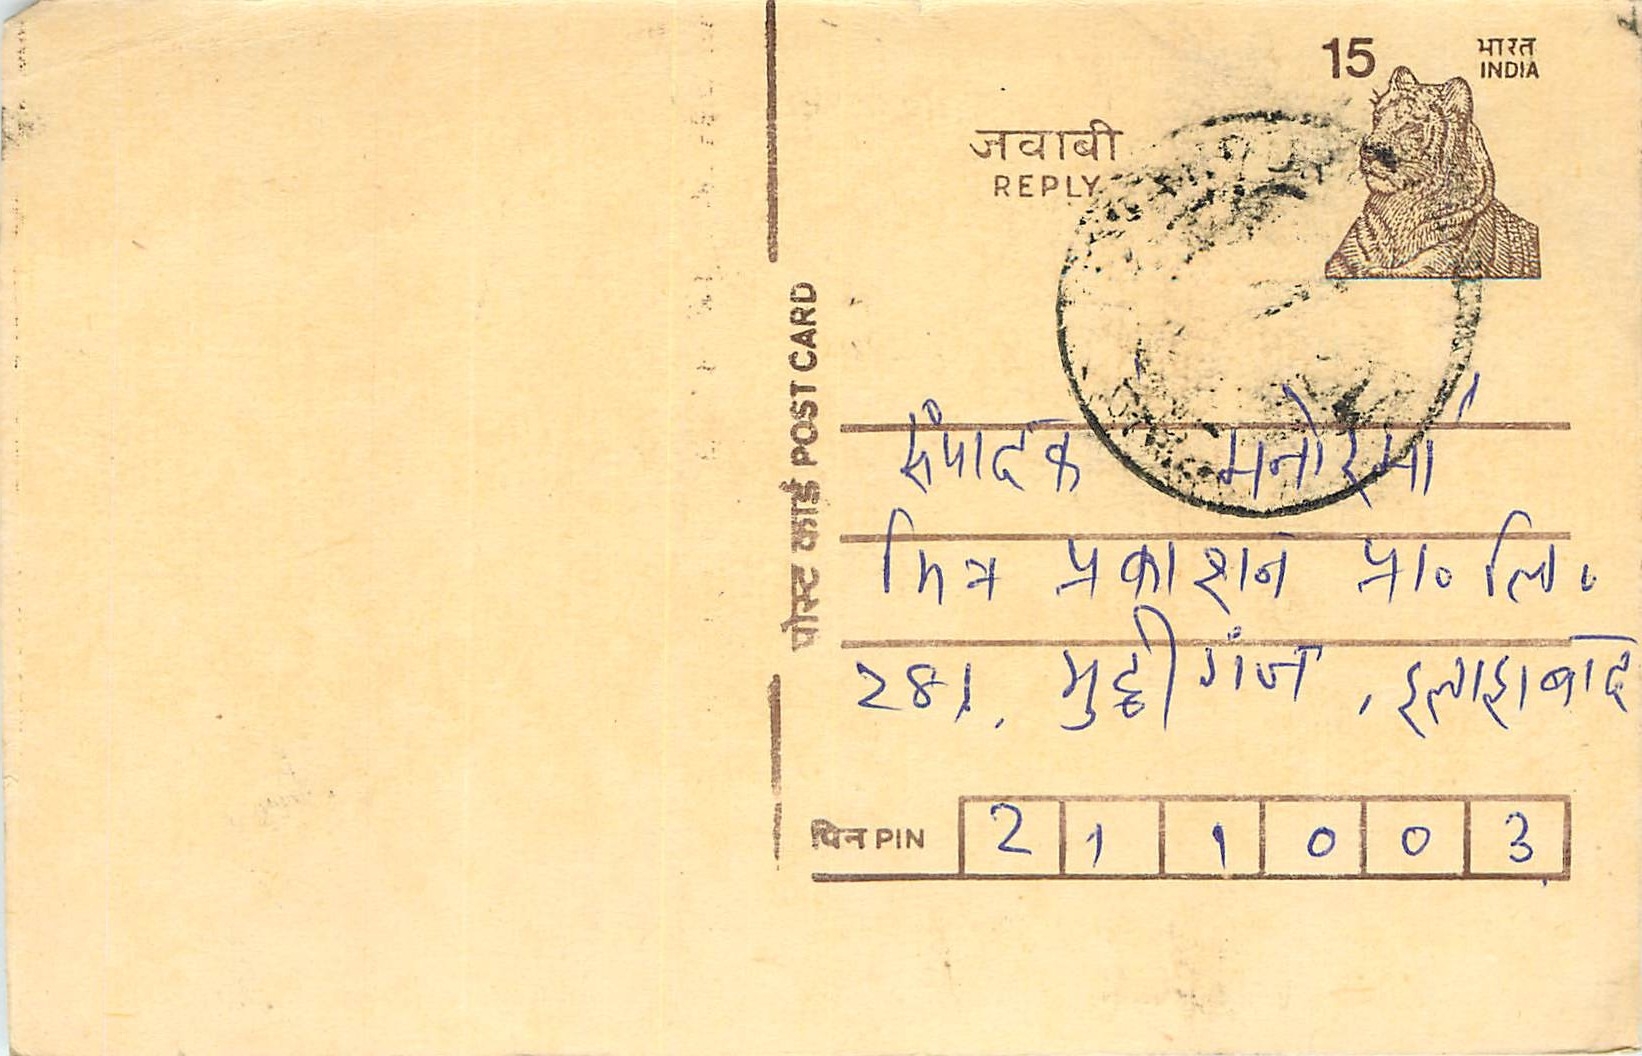 15 भारत
INDIA
जवाबी
REPLY
पोस्ट कार्ड POST CARD
संपादक मनोरमा
मित्र प्रकाशन प्रा० लि.
281, मुट्ठीगंज, इलाहाबाद
पिन PIN 2 1 1 0 0 3